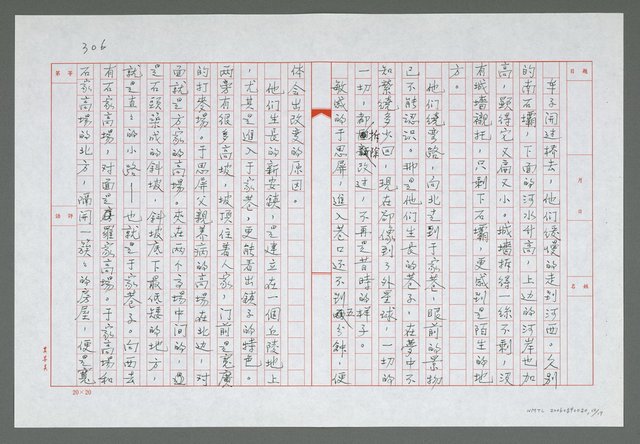 306
車子開過橋去，他們緩緩的走到河西。久別
的南石壩，下面的河水升高，上邊的河岸也加
高，顯得它又扁又小。城墻拆得一絲不剩，沒
有城墻襯托，只剩下石壩，更感到是陌生的地
方。
他們繞彎路，向北走到于家巷子，眼前的景物
已不能認識。那是他們生長的巷子，在夢中不
知縈繞多少回，現在卻像到了外星球，一切的
一切，都拆除改過，不再是昔時的樣子。
敏感的于思屏，進入巷口還不到五分鐘，便
體会出改變的原因。
他們生長的新安鎮，是建立在一個丘陵地上
，尤其是進入于家巷，更能看出鎮子的特色。
兩旁有很多高坡，坡頂住著人家，門前是寬廣
的打麥場。于思屏父親養病的高場在北边，对
面就是方家的高場。夾在两个高場中间的，是
是石頭築成的斜坡，斜坡底下最低矮的地方，
就是直直的小路——也就是于家巷子。向西去
有石家高場，对面是羅家高場。于家高場和
石家高場的北方，隔開一簇簇的房屋，便是寬
日期
月
日
姓名
第
等
評語
20×20
NMTL